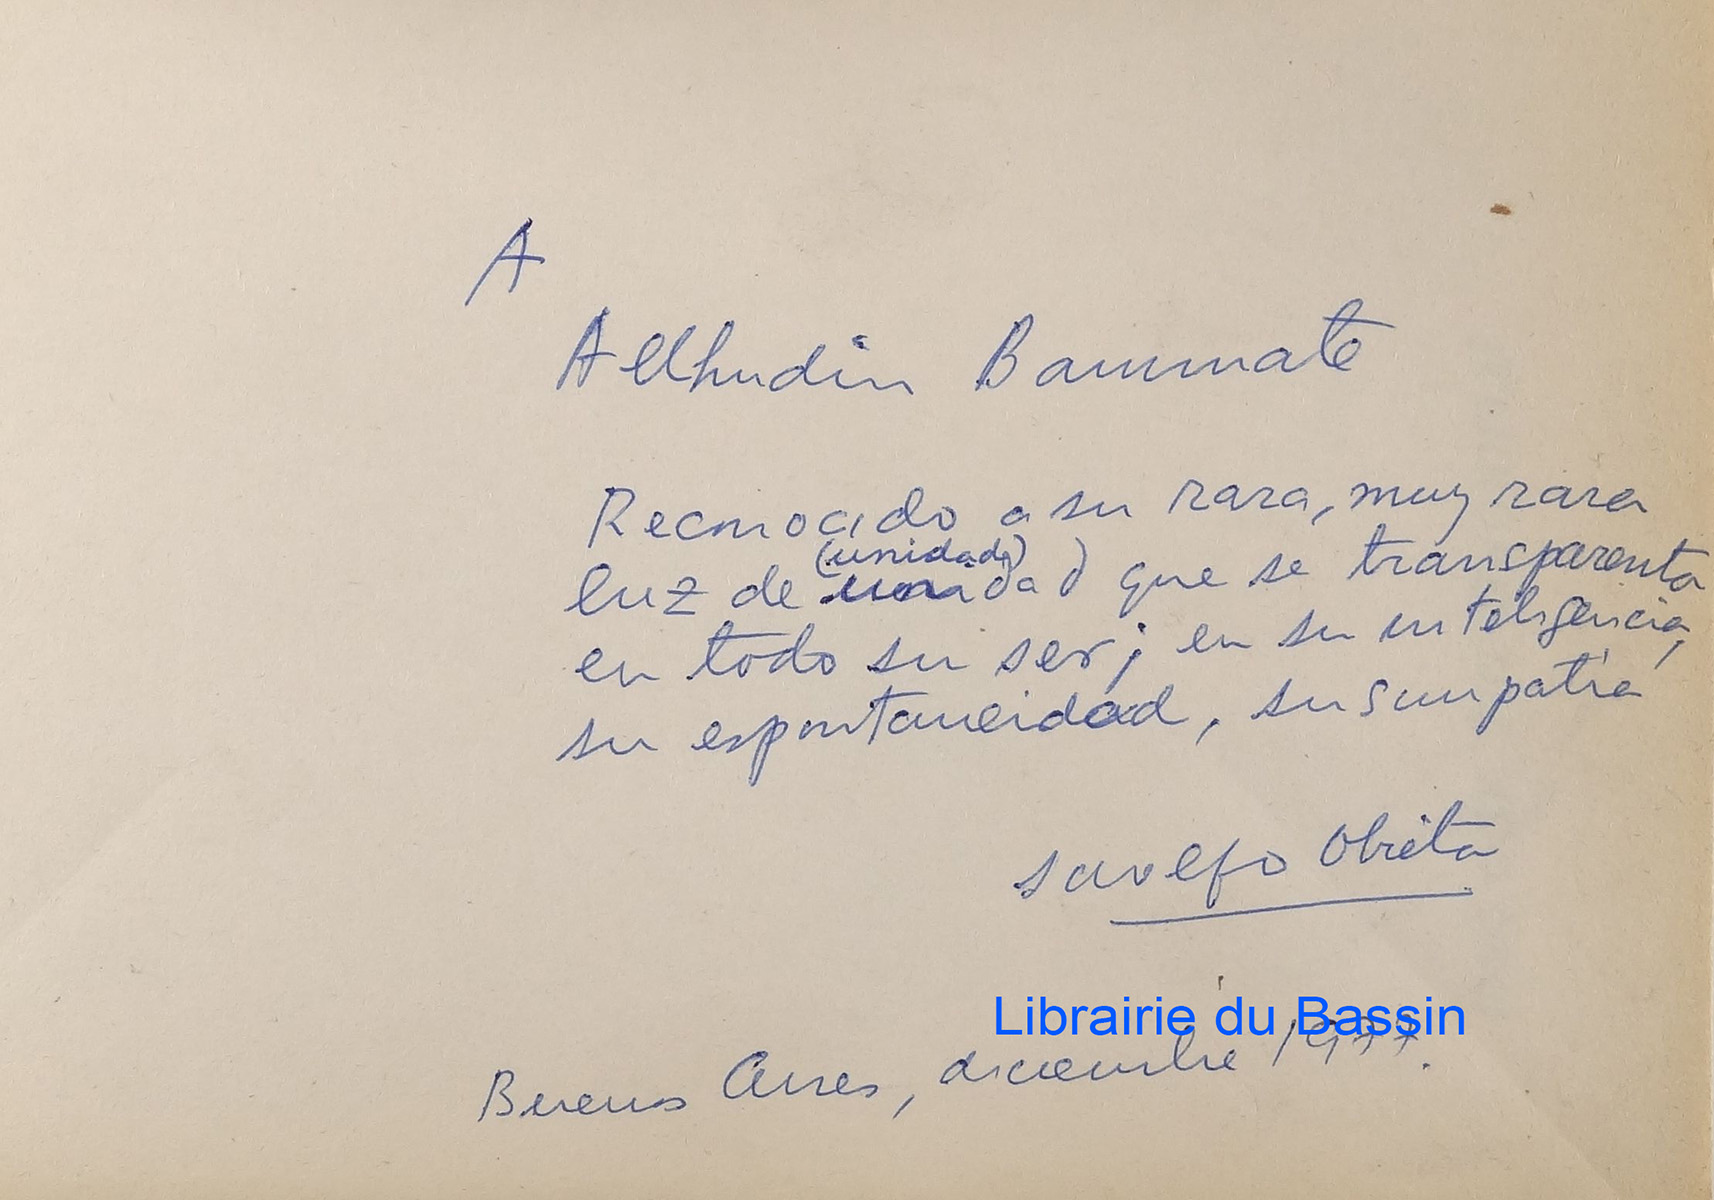 A
Aelhudin Bammate
Reconocido a su rara, muy rara
(unidad)
luz de unidad que se transparenta
en todo su ser; en su inteligencia,
su espontaneidad, su simpatía
Adolfo Obieta
Librairie du Bassin
Buenos Aires, diciembre 1977.